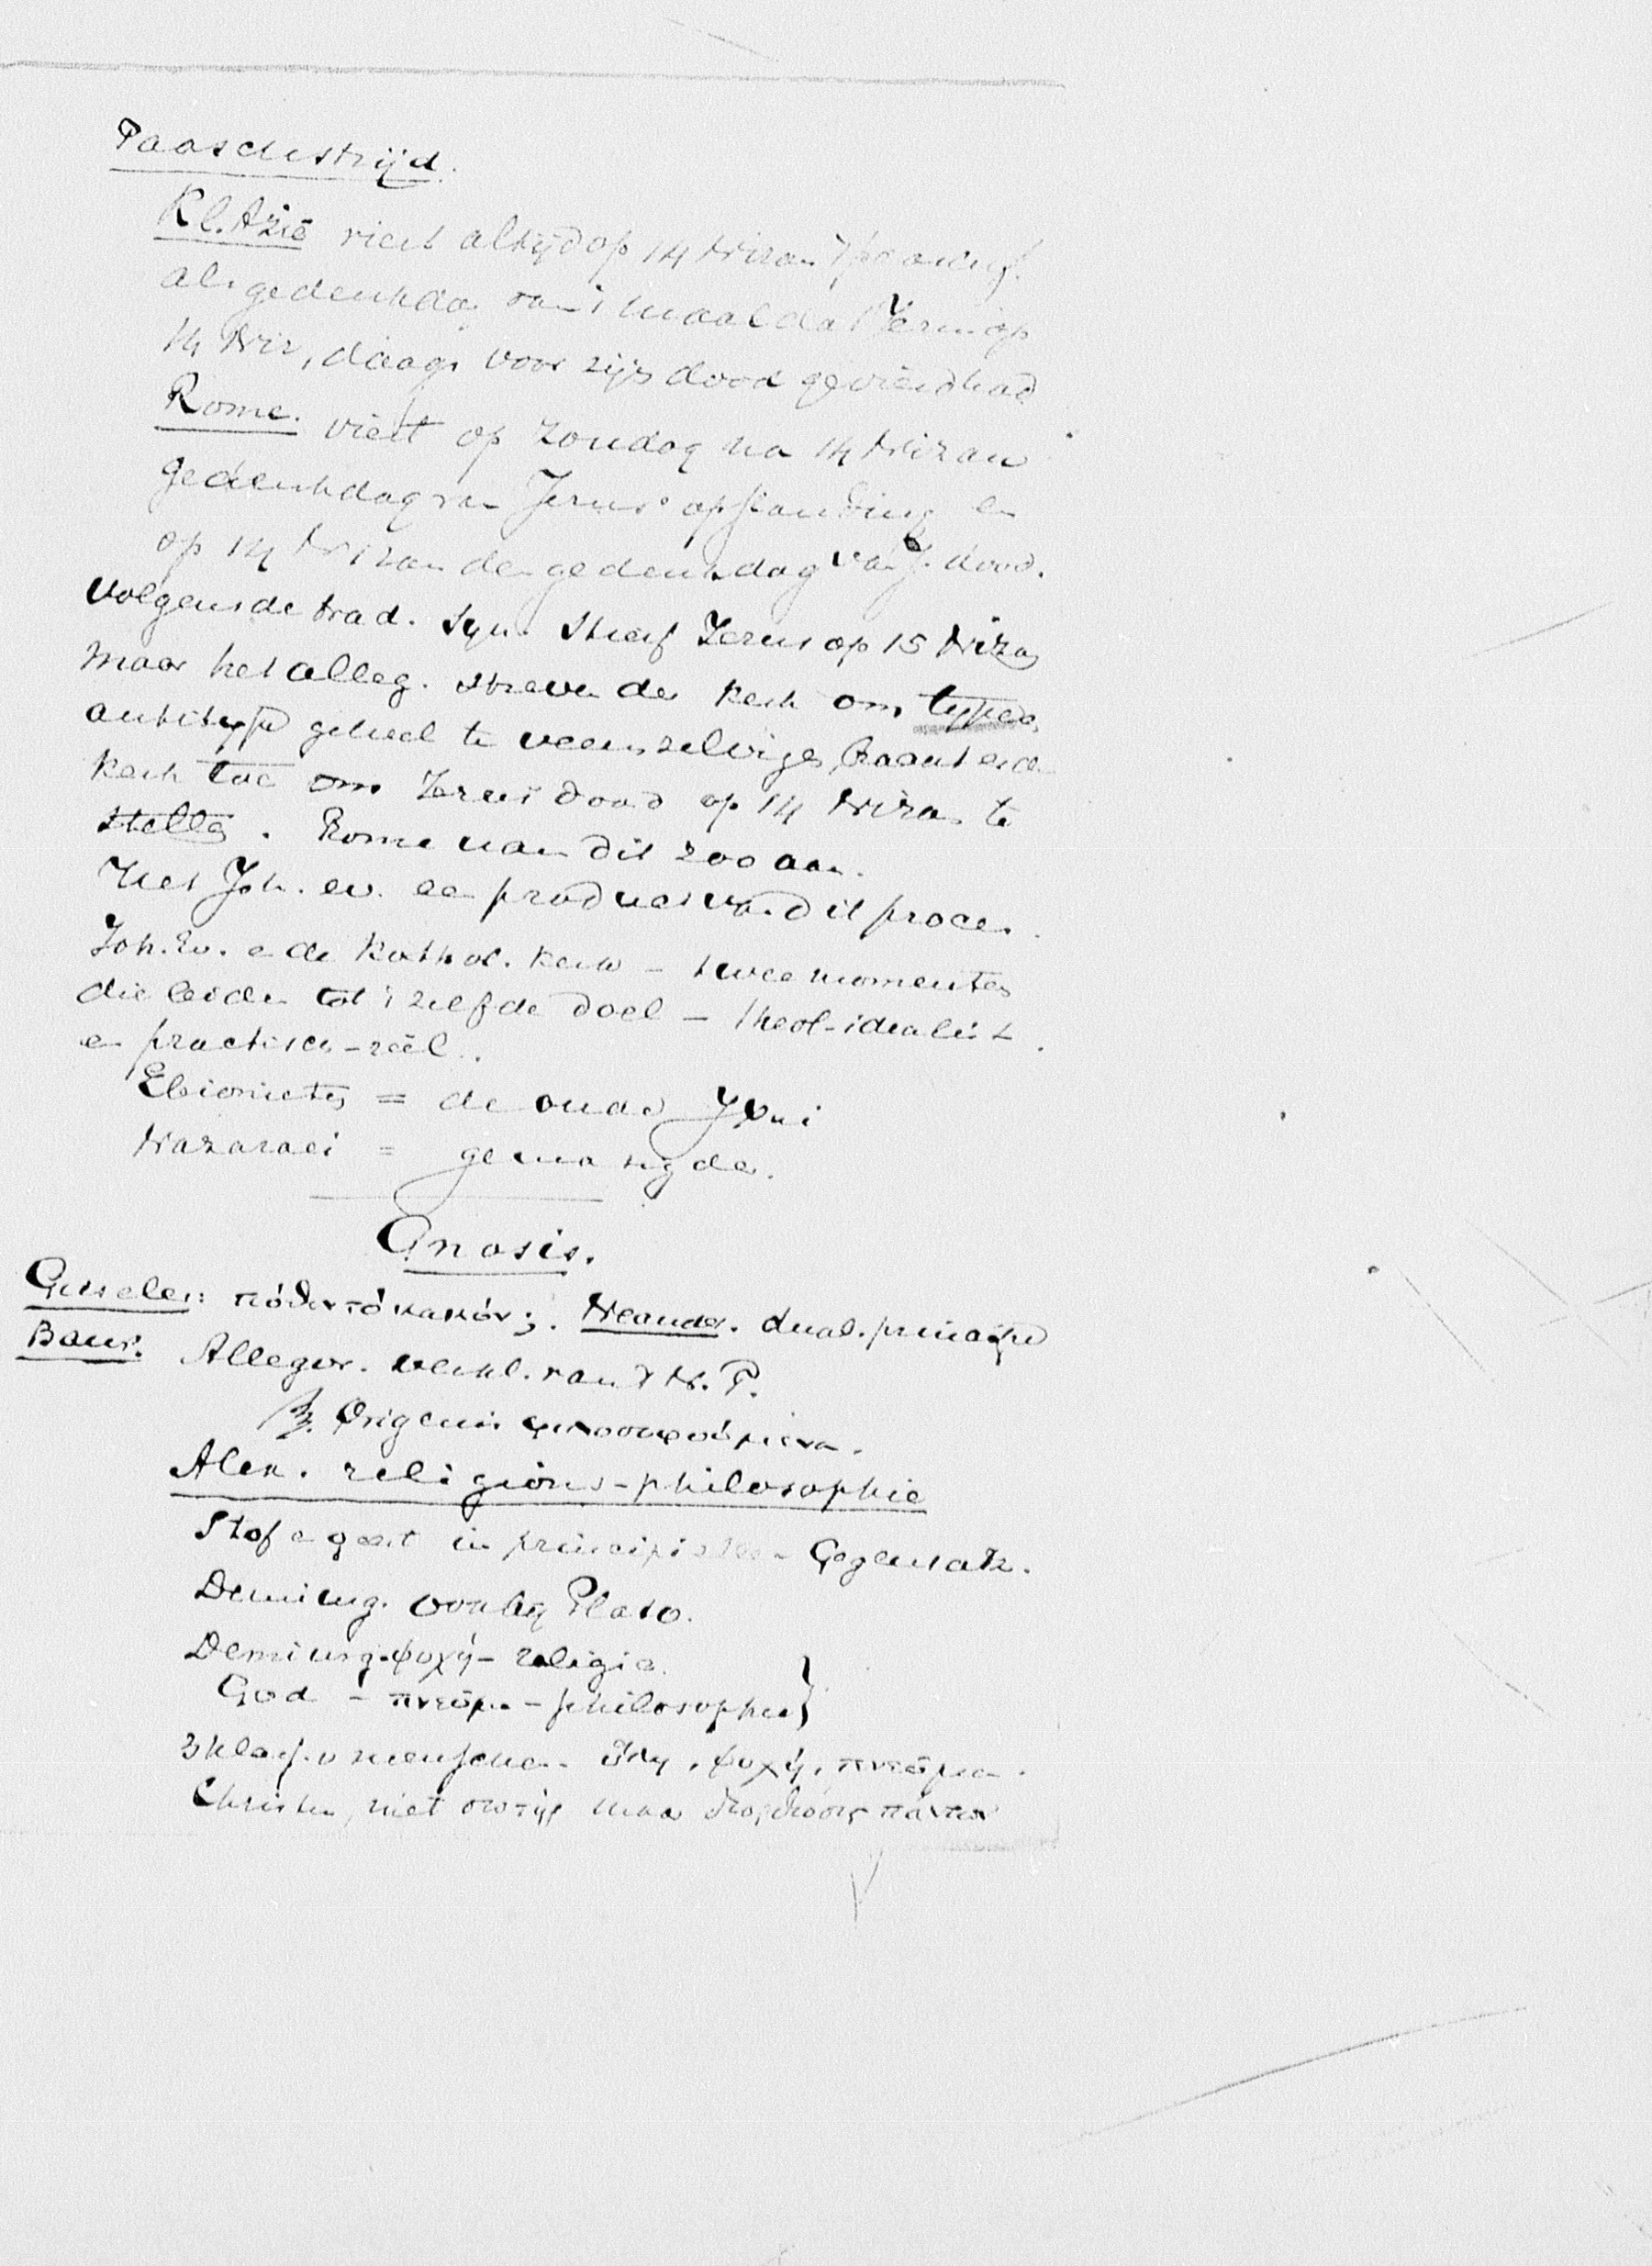 Paaschstrijd.
Kl. Azië viert altijd op 14 Nizan 't paaschf.
als gedenkdag van 't maal dat Jezus op
14 Niz, daags voor zijn dood gevierd had
Rome. viert op Zondag na 14 Nizan
gedenkdag van Jezus' opstanding en
op 14 Nizan den gedenkdag van J. dood.
Volgens de trad. syn. stierf Jezus op 15 Nizan
maar het alleg. streven der kerk om typen
antitype geheel te vereenzelvigen, bracht de
kerk toe om Jezus dood op 14 Nizan te
stellen. Rome nam dit zoo aan.
Het Joh. ev. een product van dit proces.
Joh. Ev. en de Kathol. kerk – twee momenten
die leiden tot 't zelfde doel – theol-idealist.
en practisch-reël.
Ebionieten = de oude
Nazaraei = gematigden.
Gnosis.
Gieseler: πόθεν τό κακόν; . Neander. dual. principe
Baur. Allegor. verkl. van 't
Origenis φιλοσοφούμενα.
Alex. religions-philosophie
Stof en geest in principiëelen Gegensatz.
Demiurg. ook bij Plato.
Demiurg - ψυχή - religie
God - πνεῦμα - philosophie}
3 klass. v menschen - ὕλη, ψυχή, πνεῦμα.
Christus, niet σωτήρ maar διορθωσις πάντων